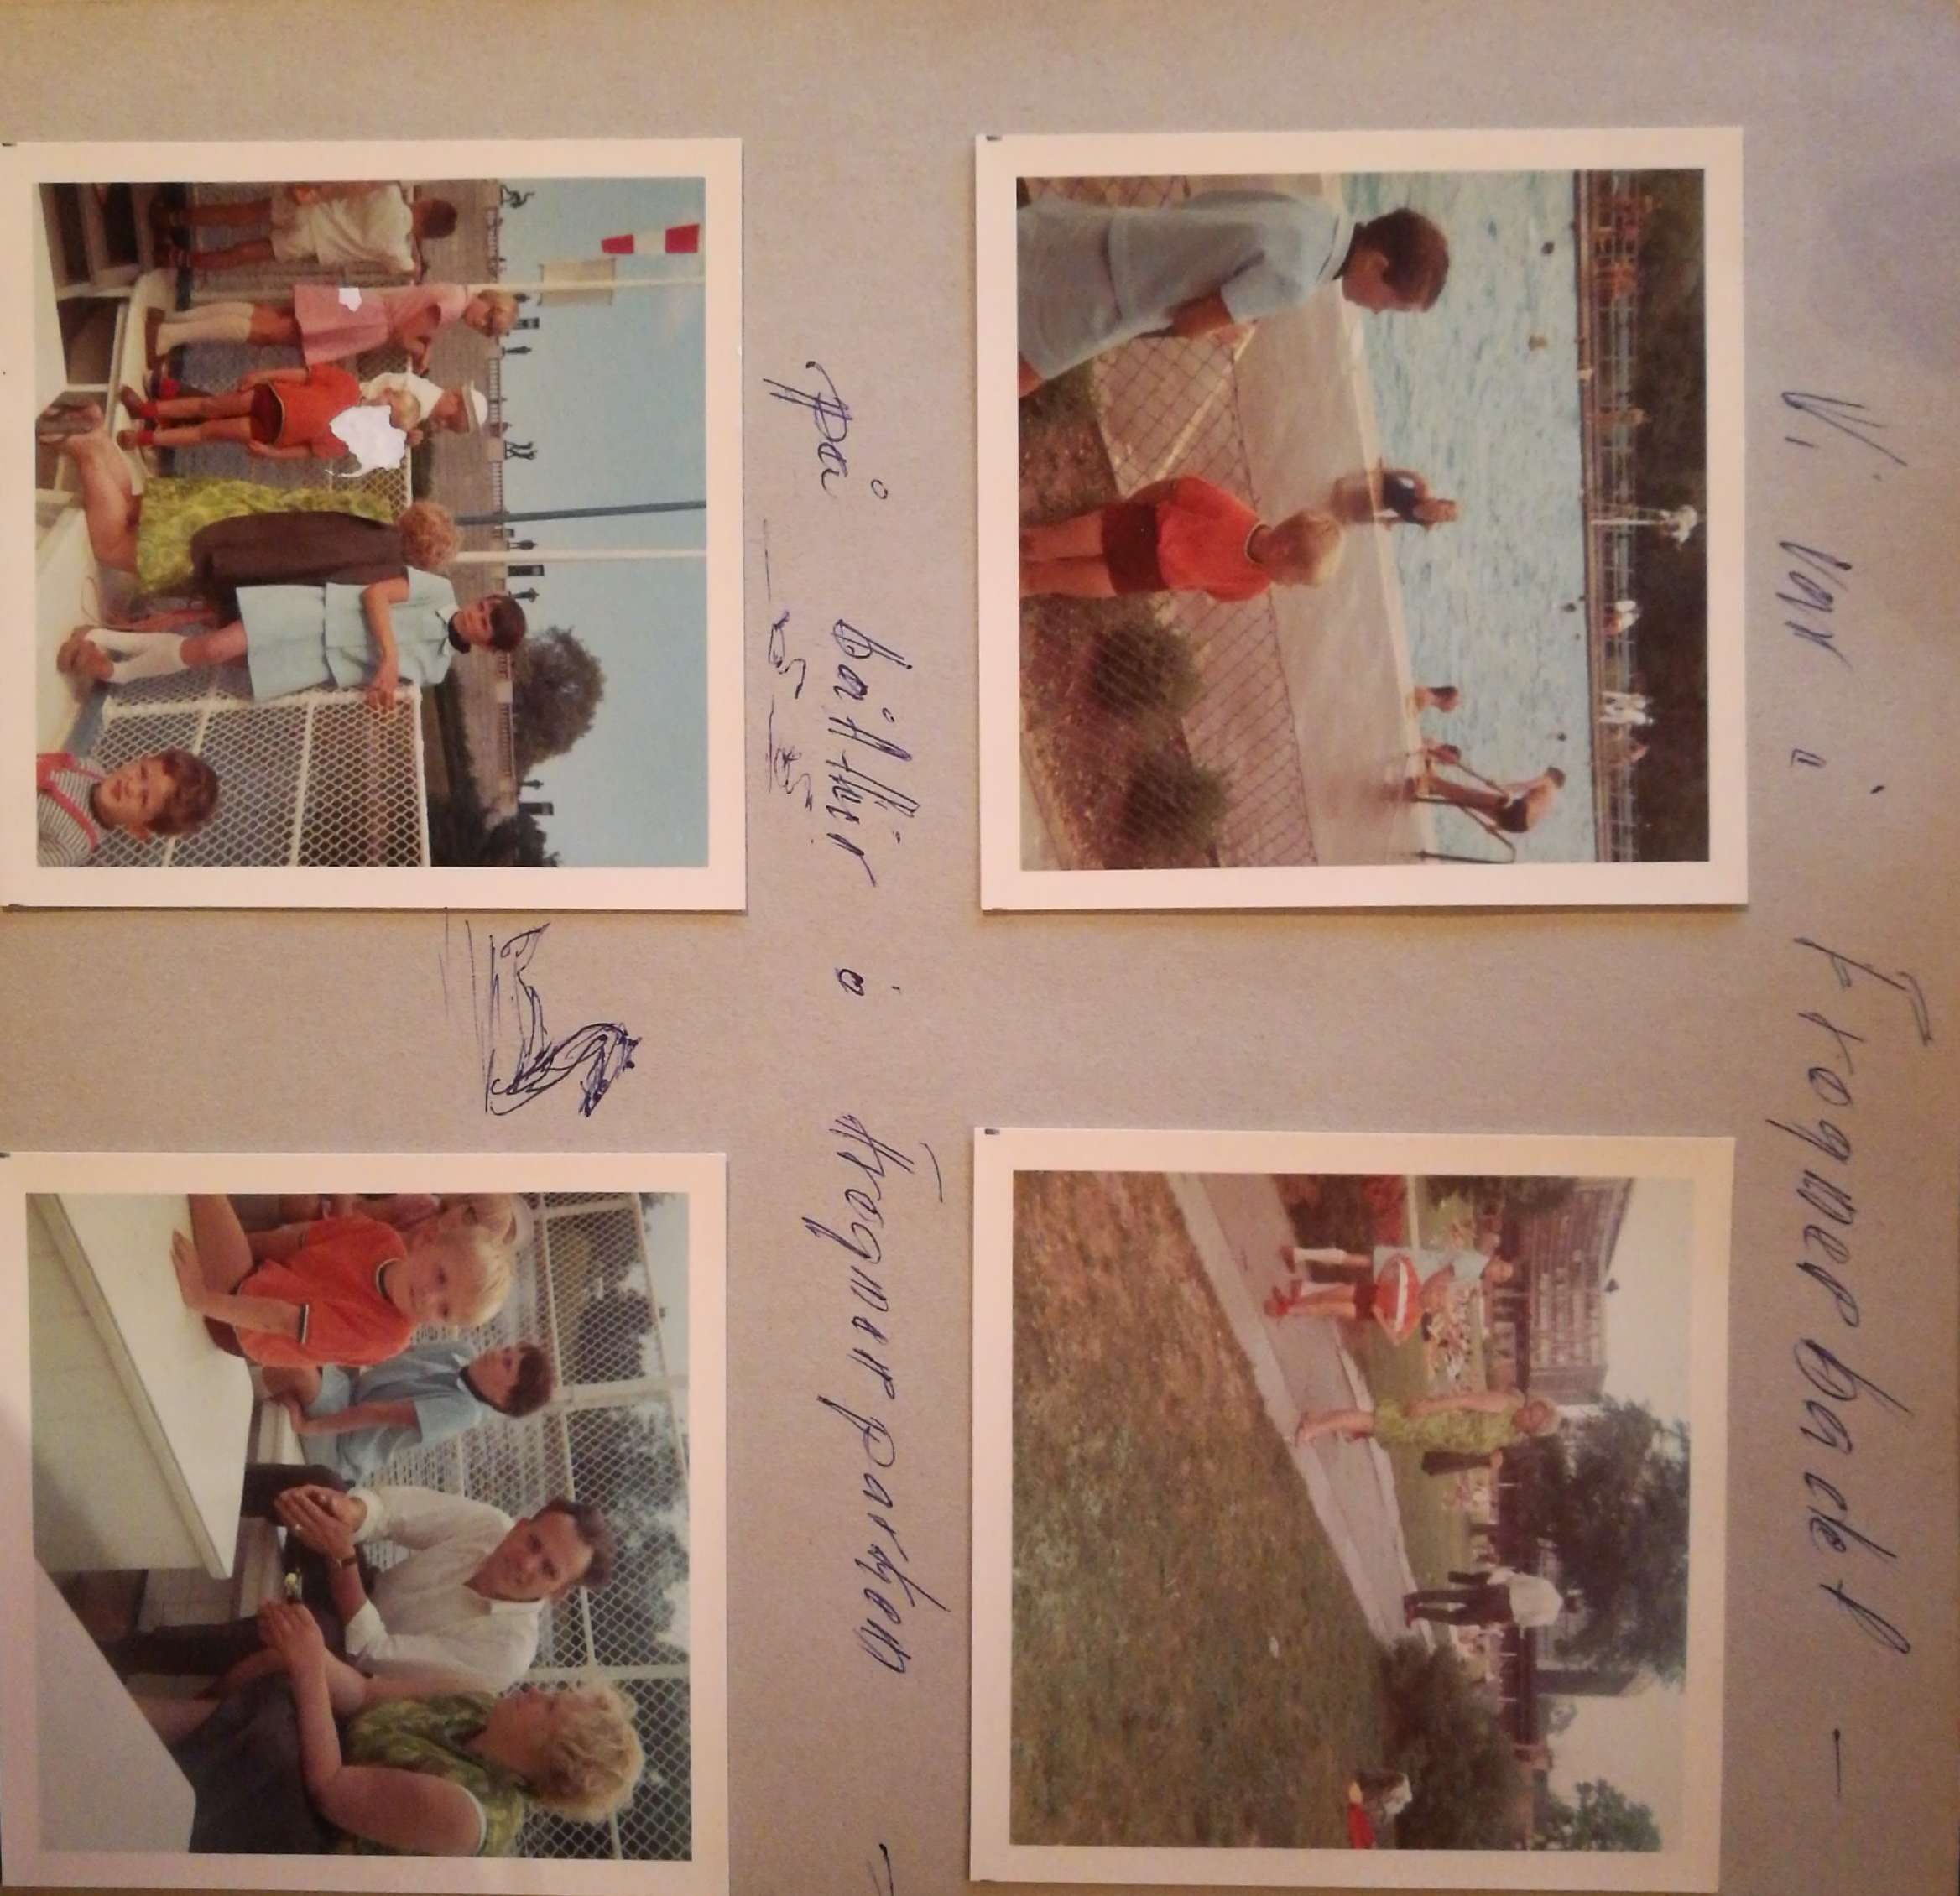 Vi var i Frognerbadet –
på båttur i Frognerparken –